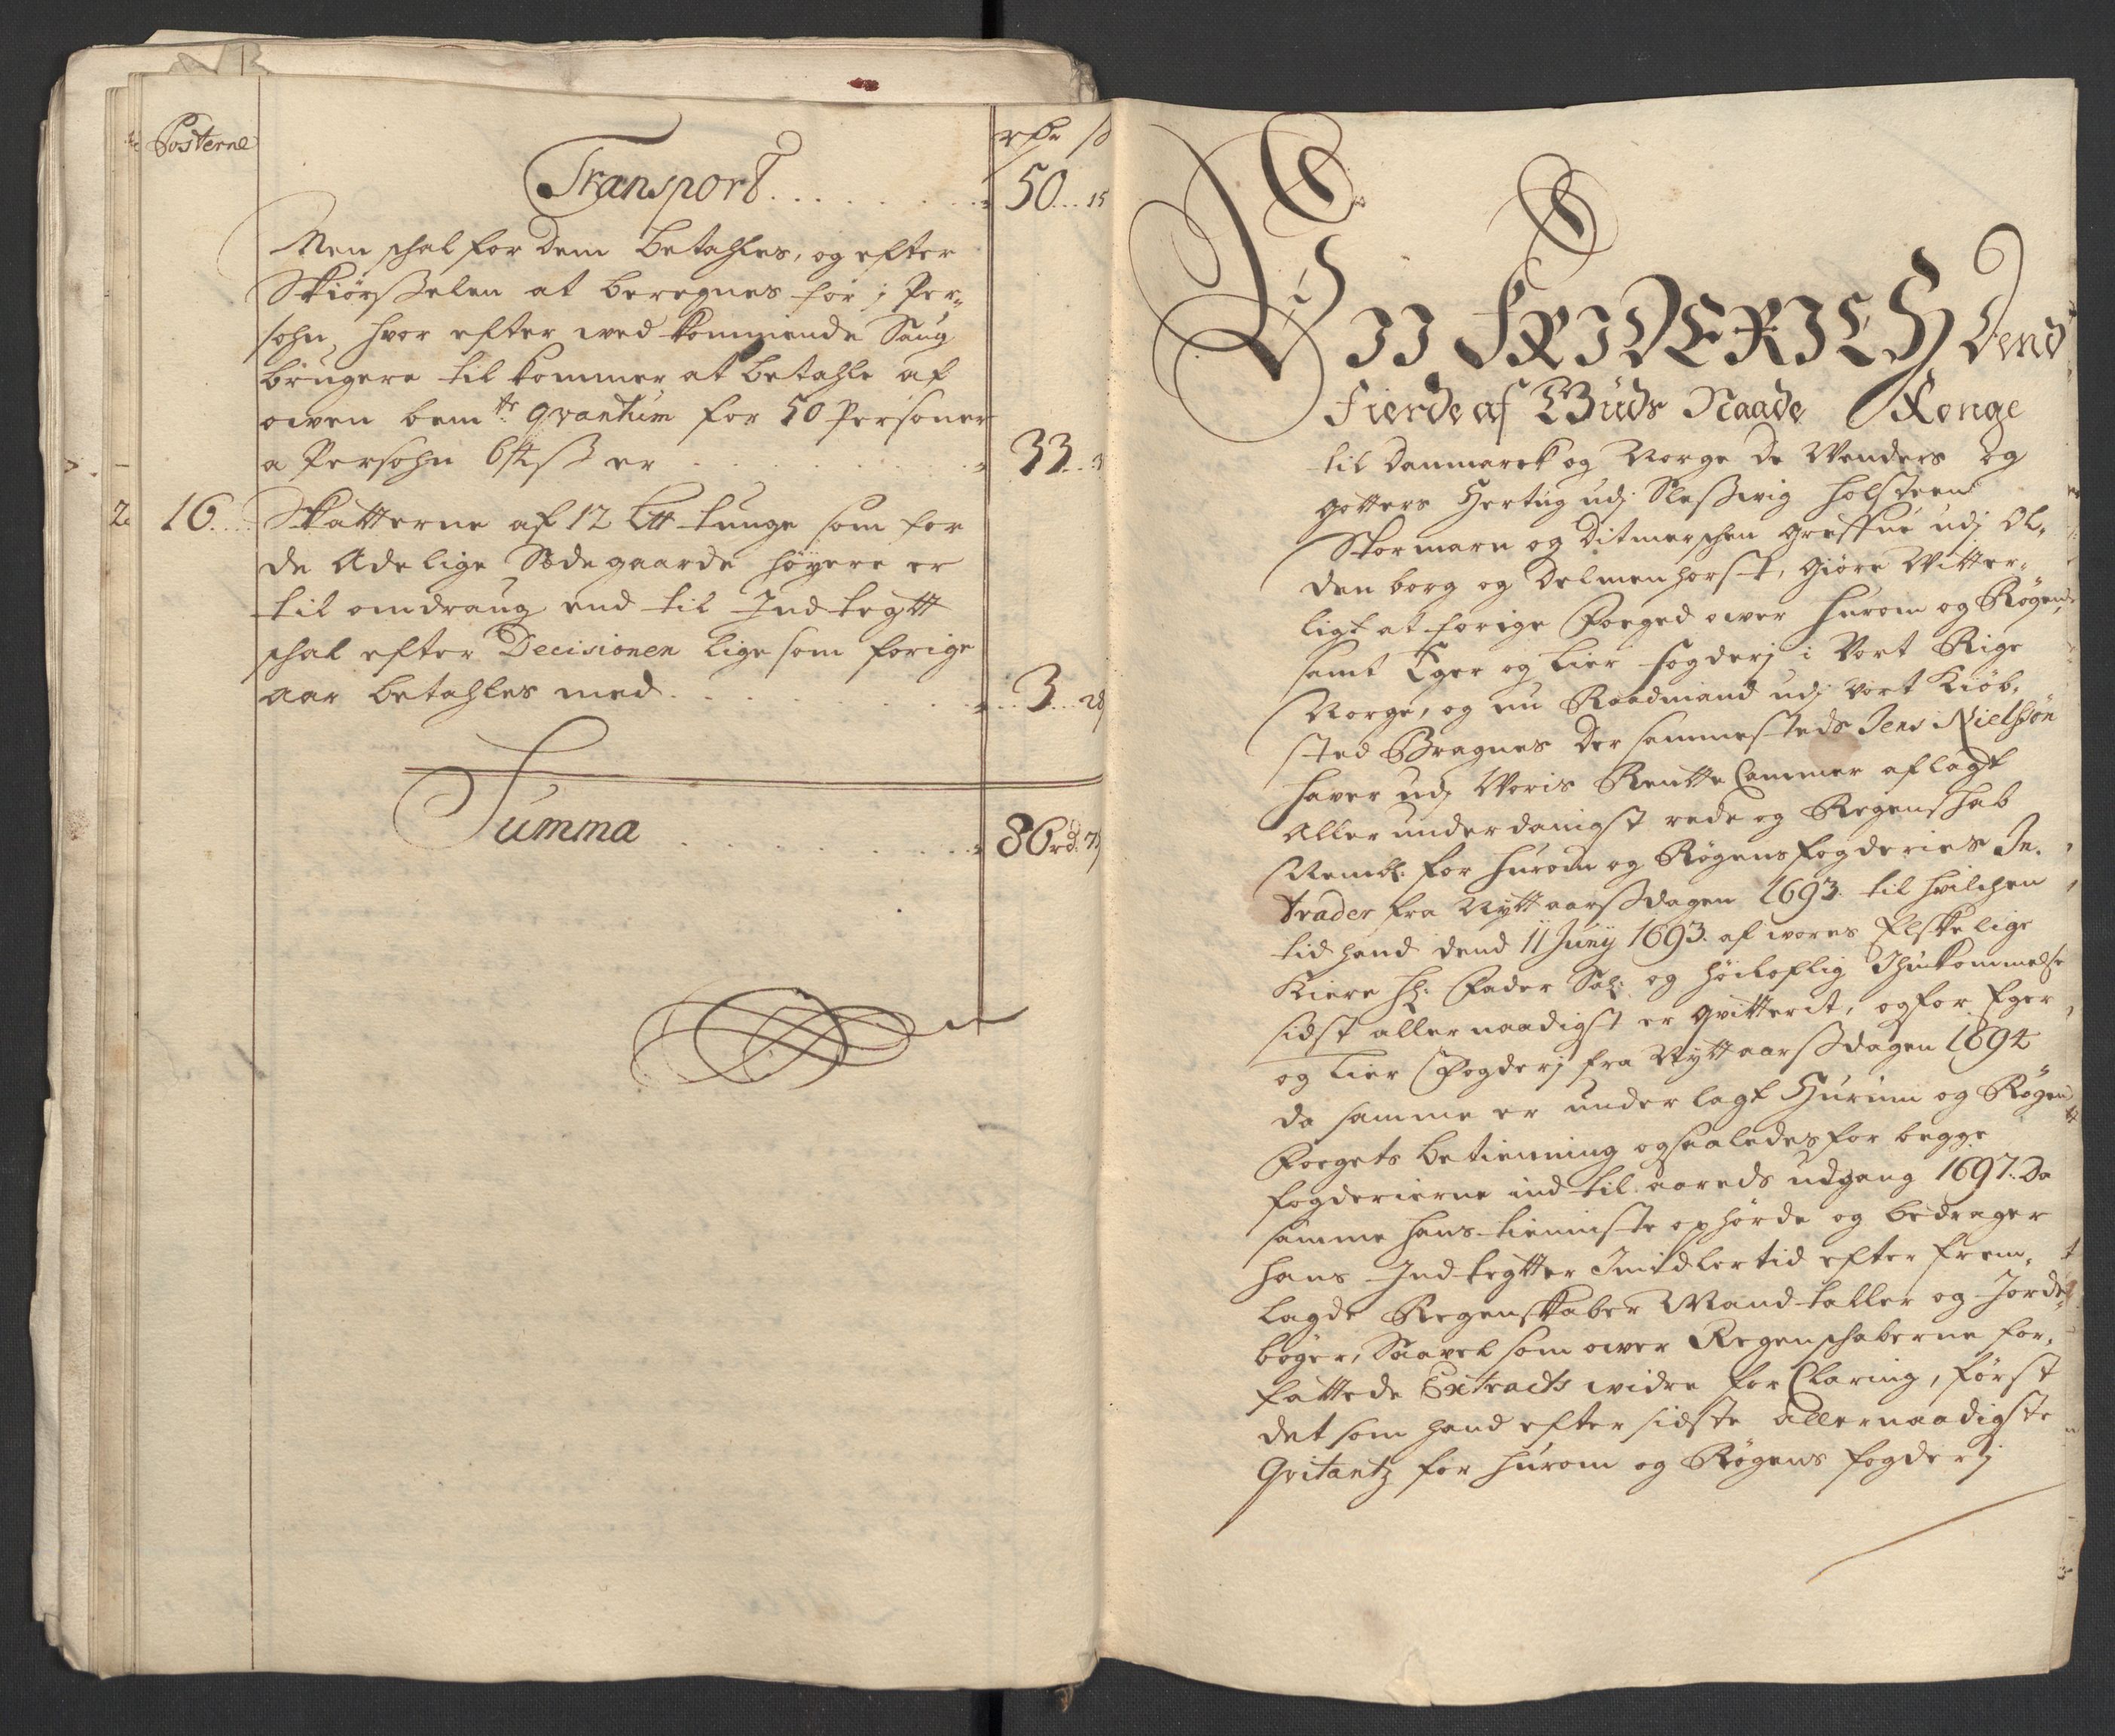 Posterne
rdr ß
Transport . . . . . . . 50 . . 15
Men schal for dem betahles, og efter
Skiørsselen at beregnes for j Per-
sohn, hvor efter ved kommende Saug
brugere til kommer at betahle af
oven bemte qvantum for 50 Personer
a Persohn 64 ß er . . . . . . 33 . .
2. 16 . . Skatterne af 12 Lʉ tunge som for
de Adelige Sædegaarde høyere er
til omdraug end til Indtegtt
schal efter Decisionen lige som forige
aar betahles med . . . . . . . 3 . . 28
Summa . . . . . . . 86 rd.
Vii FRIDERICH Dend
Fierde af Guds Naade Konge
til Danmarck og Norge de Wenders og
gotters Hertug udj Sleßwig Holsteen
Stormarn og Ditmerschen greffue udj Ol-
denborg og Delmenhorst, giøre Witter-
ligt at forige Foeged over Hurom og Røgens
samt Eger og Lier fogderj i Vort Rige
Norge, og nu Raadmand udj vort Kiøb-
sted Bragnes der sammesteds Jens Nielsøn
haver udj Woris Rentte Cammer aflagt
Allerunderdanigst rede og Regenschab
Nembl: for Hurom og Røgens fogderies In-
trader fra Nyttaarßdagen 1693. til hvilchen
tid hand dend 11 Juny 1693. af wores Elskelige
Kiere Hr: Fader Sal: og høiloflig Ihukommelse
sidst allernaadigst er qvitterit, og for Eger
og Lier Fogderj fra Nyttaarßdagen 1694
da samme er underlagt Hurum og Røgens
Foegets betienning og saaledes for begge
fogderierne ind til aareds udgang 1697. Da
samme hans tienniste ophørde og bedrager
hans Indtegtter Imidlertid efter frem-
lagde Regenskaber Mandtaller og Jorde-
bøger, Saavel som over Regenschaberne for-
fattede Extracts widre forClaring, først
det som hand efter sidste allernaadigste
Qvitantz for Hurom og Røgens fogderj